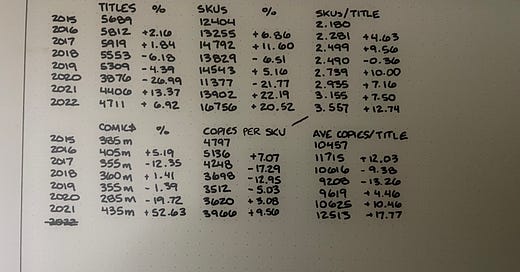 TITLES % SKUS % SKUs/TITLE
2015 5689 12404 2.180
2016 5812 +2.16 13255 +6.86 2.281 +4.63
2017 5919 +1.84 14792 +11.60 2.499 +9.56
2018 5553 -6.18 13829 -6.51 2.490 -0.36
2019 5309 -4.39 14543 +5.16 2.739 +10.00
2020 3876 -26.99 11377 -21.77 2.935 +7.16
2021 4406 +13.37 13902 +22.19 3.155 +7.50
2022 4711 +6.92 16756 +20.52 3.557 +12.74
COMICS % COPIES PER SKU AVE COPIES/TITLE
2015 385m 4797 10457
2016 405m +5.19 5136 +7.07 11715 +12.03
2017 355m -12.35 4248 -17.29 10616 -9.38
2018 360m +1.41 3698 -12.95 9208 -13.26
2019 355m -1.39 3512 -5.03 9619 +4.46
2020 285m -19.72 3620 +3.08 10625 +10.46
2021 435m +52.63 3966 +9.56 12513 +17.77
2022